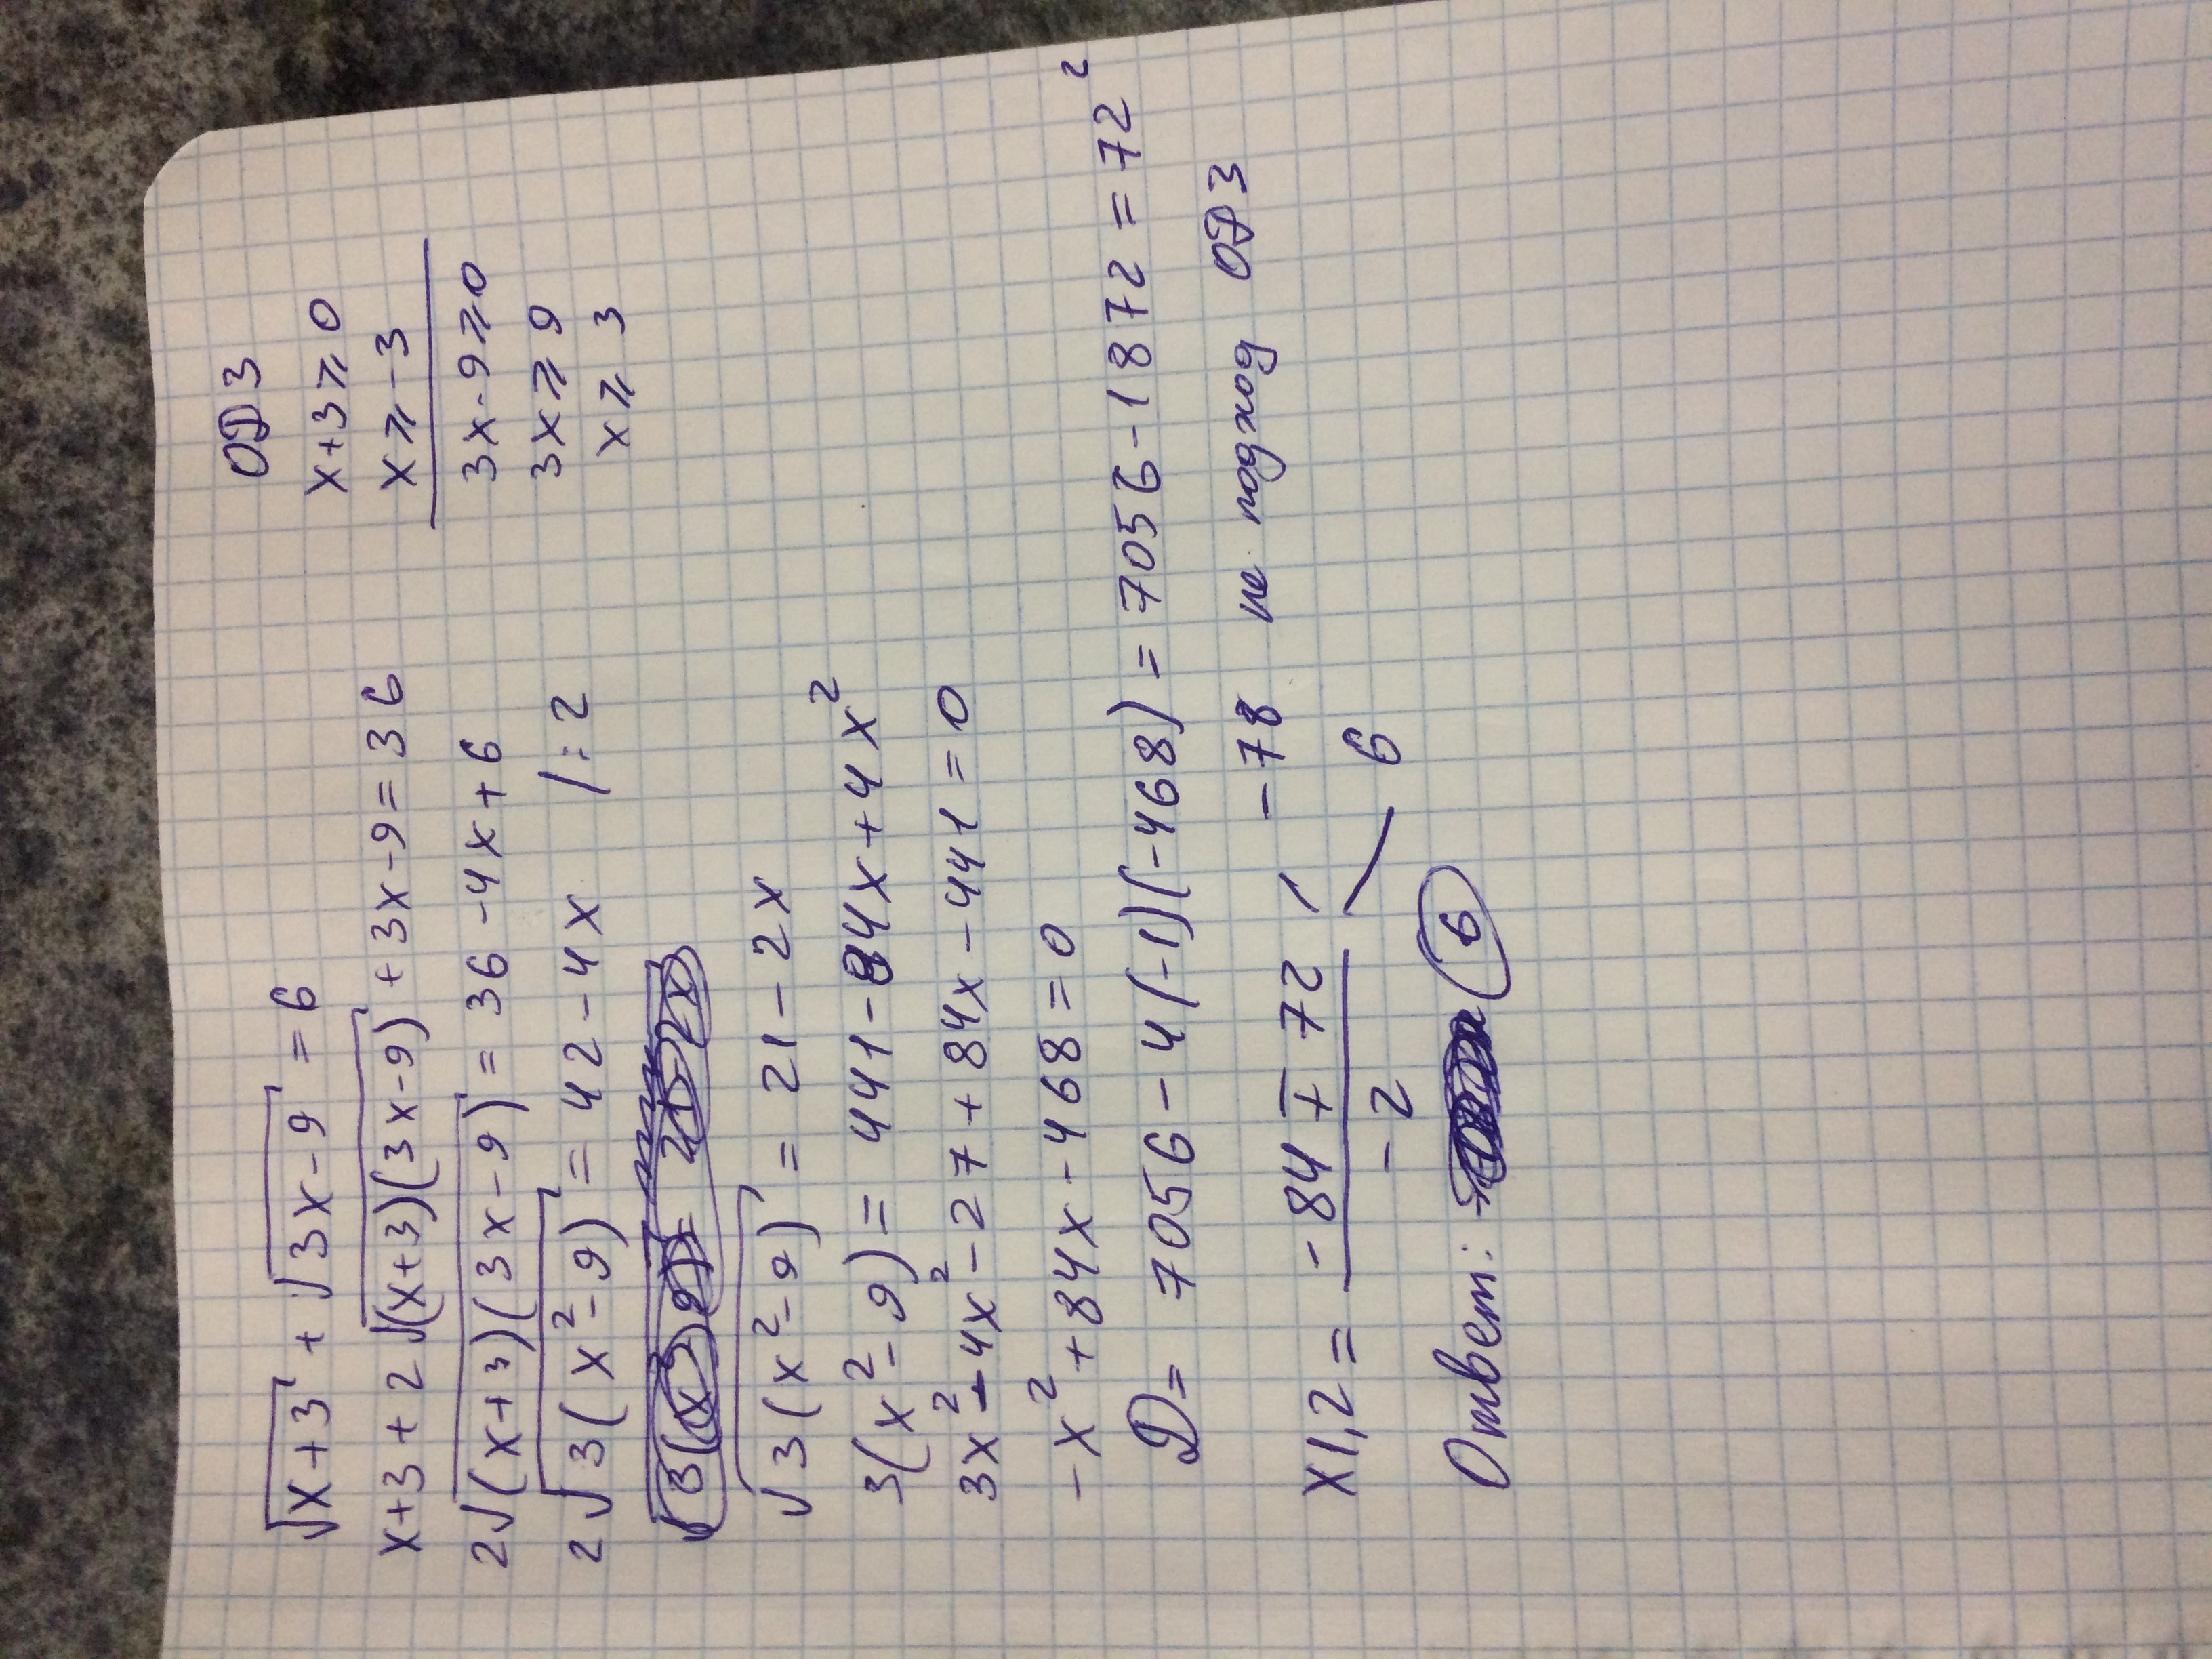 √x+3 + √3x-9 = 6
x+3+2√(x+3)(3x-9) +3x-9=36
2√(x+3)(3x-9) = 36-4x+6
2√3(x²-9) = 42-4x /:2
√3(x²-9) = 21-2x
3(x²-9) = 441-84x+4x²
3x²-4x²-27+84x-441=0
-x²+84x-468=0
D= 7056-4(-1)(-468)=7056-1872=72²
x1,2 = (-84∓72)/(-2)
-78 не подход ОДЗ
6
Ответ: 6
ОДЗ
x+3⩾0
x⩾-3
3x-9⩾0
3x⩾9
x⩾3